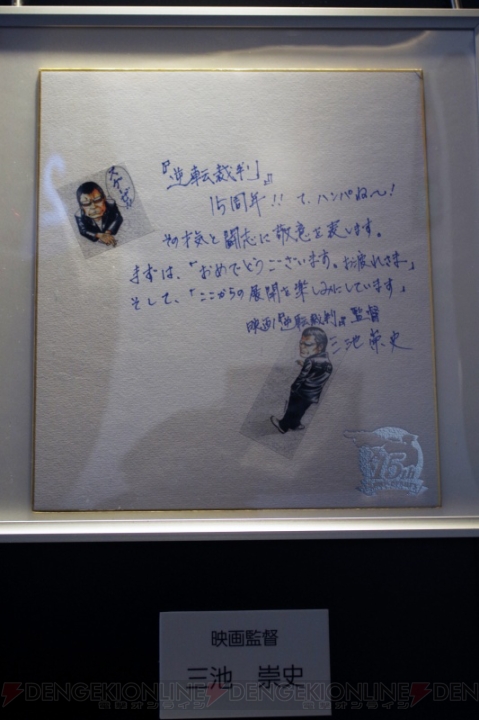 『逆転裁判』
15周年!! て、ハンパね〜!
その才気と闘志に敬意を表します。
まずは、「おめでとうございます。お疲れさま」
そして、「ここからの展開を楽しみにしています」
映画『逆転裁判』監督
三池崇史
15th
映画監督
三池 崇史
DENGEKIONLINE DENGEKIONLINE
電撃オンライン 電撃オンライン